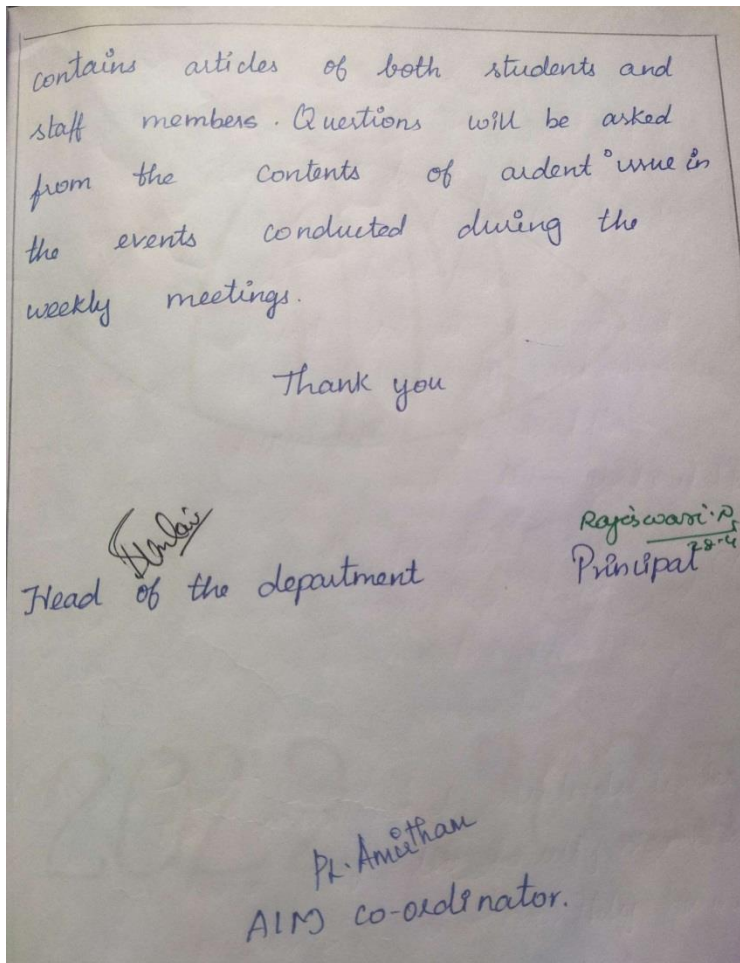 contains articles of both students and
staff members. Questions will be asked
from the contents of ardent issue in
the events conducted during the
weekly meetings.
Thank you
Rajeswari. R
Head of the department
Principal
PL. Amirtham
AIM co-ordinator.